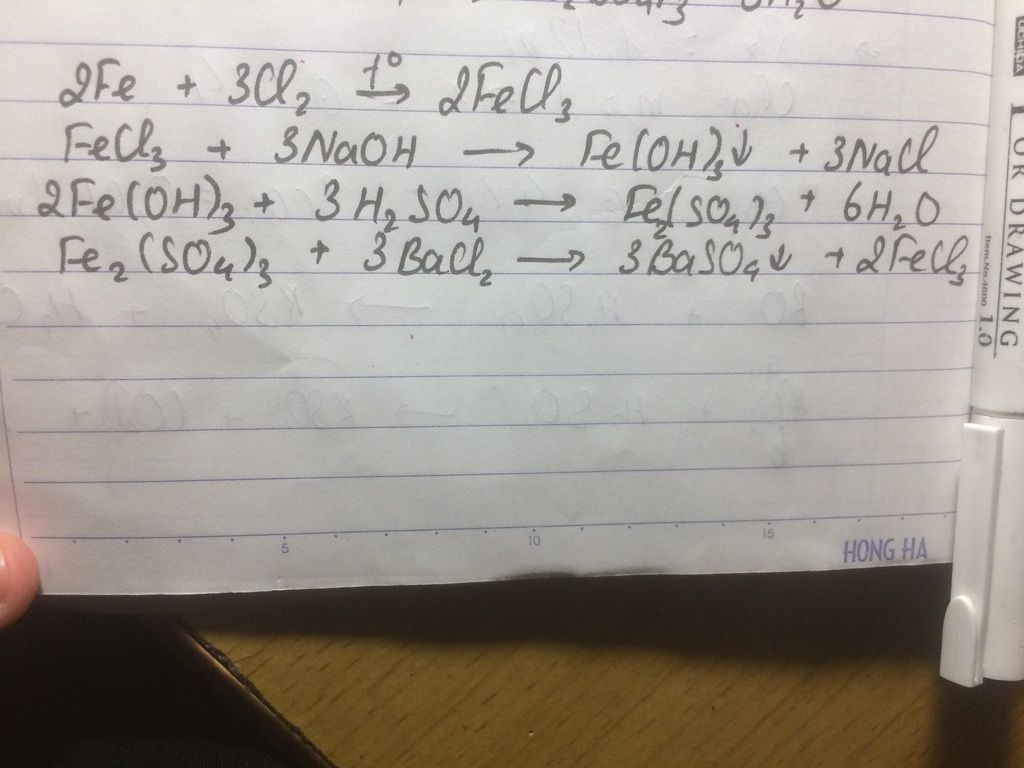 2Fe + 3Cl₂ →t° 2FeCl₃
FeCl₃ + 3NaOH → Fe(OH)₃↓ + 3NaCl
2Fe(OH)₃ + 3H₂SO₄ → Fe₂(SO₄)₃ + 6H₂O
Fe₂(SO₄)₃ + 3BaCl₂ → 3BaSO₄↓ + 2FeCl₃
5 10 15
HONG HA
FOR DRAWING
Item.No.4600 1.0